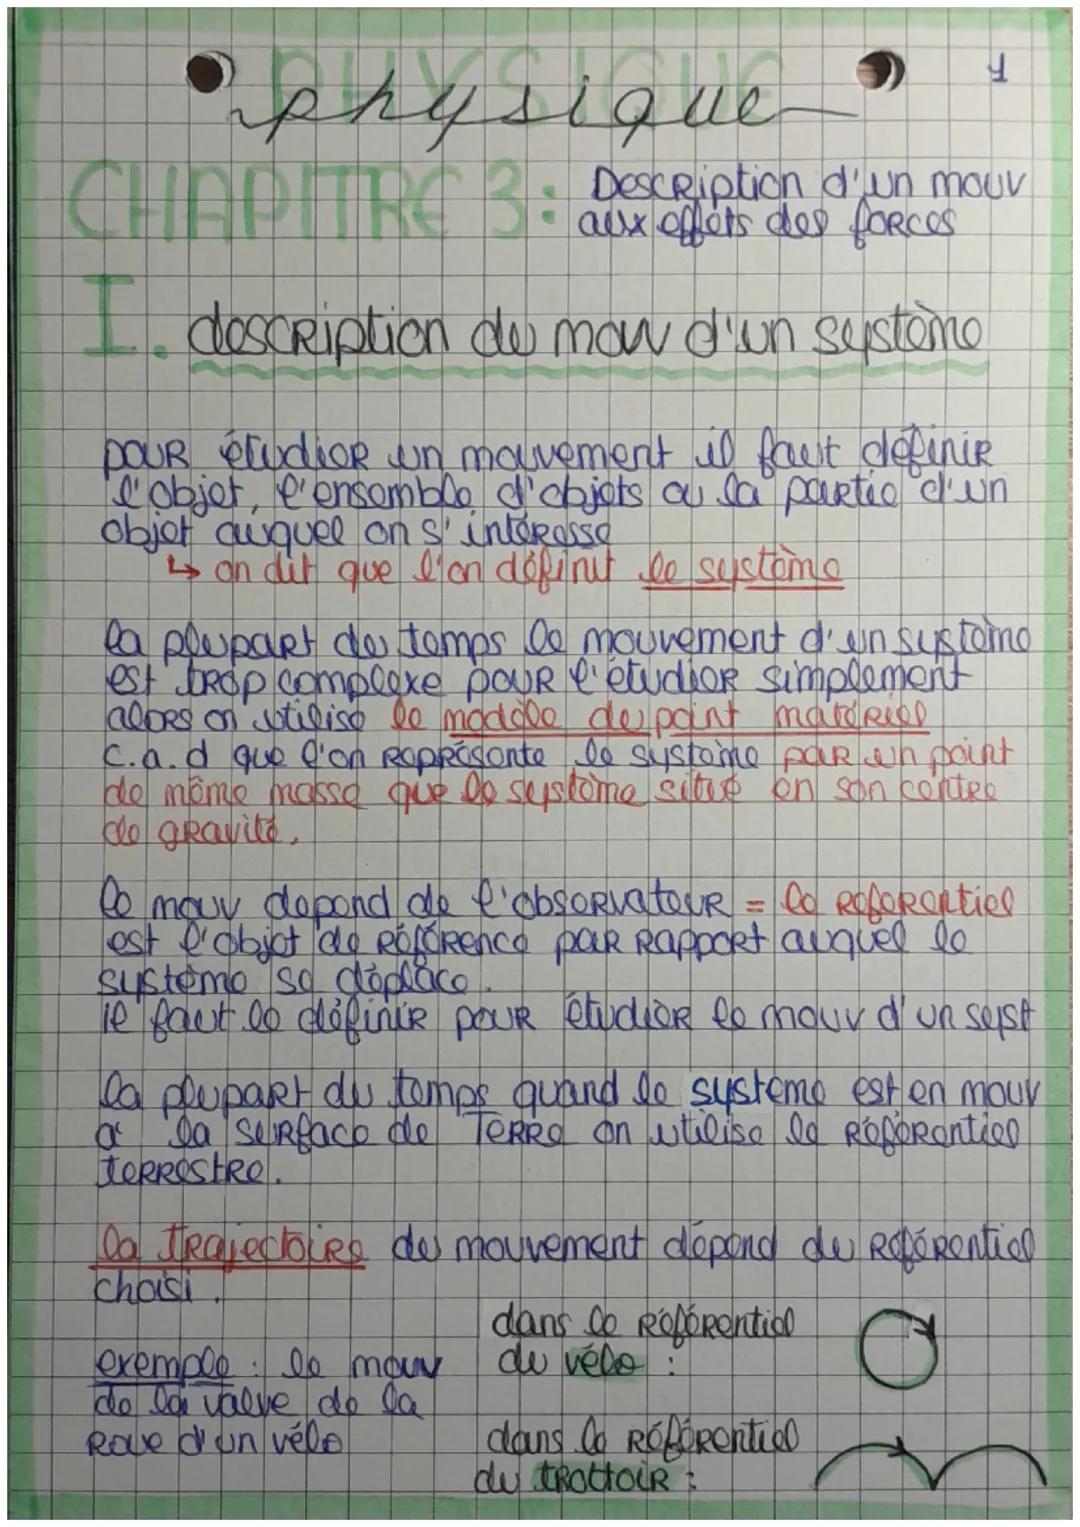 PHYSIQUE
physique
1
CHAPITRE 3: Description d'un mouv
aux effets des forces
I. description du mouv d'un système
pour étudier un mouvement il faut définir
l'objet, l'ensemble d'objets ou la partie d'un
objet auquel on s'intéresse
↳ on dit que l'on définit le système
la plupart du temps le mouvement d'un système
est trop complexe pour l'étudier simplement
alors on utilise le modèle du point matériel
c.a.d que l'on représente le système par un point
de même masse que le système situé en son centre
de gravité.
le mouv depend de l'observateur = le referentiel
est l'objet de référence par rapport auquel le
système se déplace.
il faut le définir pour étudier le mouv d'un syst
la plupart du temps quand le systeme est en mouv
a la surface de Terre on utilise le référentiel
terrestre.
la trajectoire du mouvement dépend du référentiel
choisi.
exemple : le mouv
de la valve de la
roue d'un vélo
dans le référentiel
du vélo :
dans le référentiel
du trottoir :